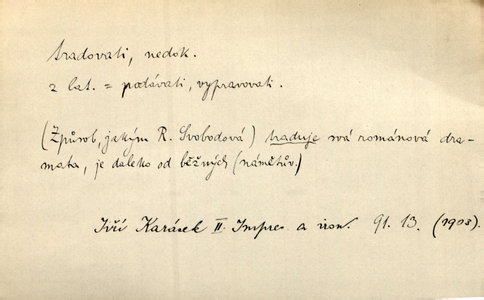 tradovati, nedok.
z lat. = podávati, vypravovati.
(Způsob, jakým R. Svobodová) traduje svá románová dra-
mata, je daleko od běžných (námětův.)
Jiří Karásek II. Impres. a iron. 91. 13. (1903)